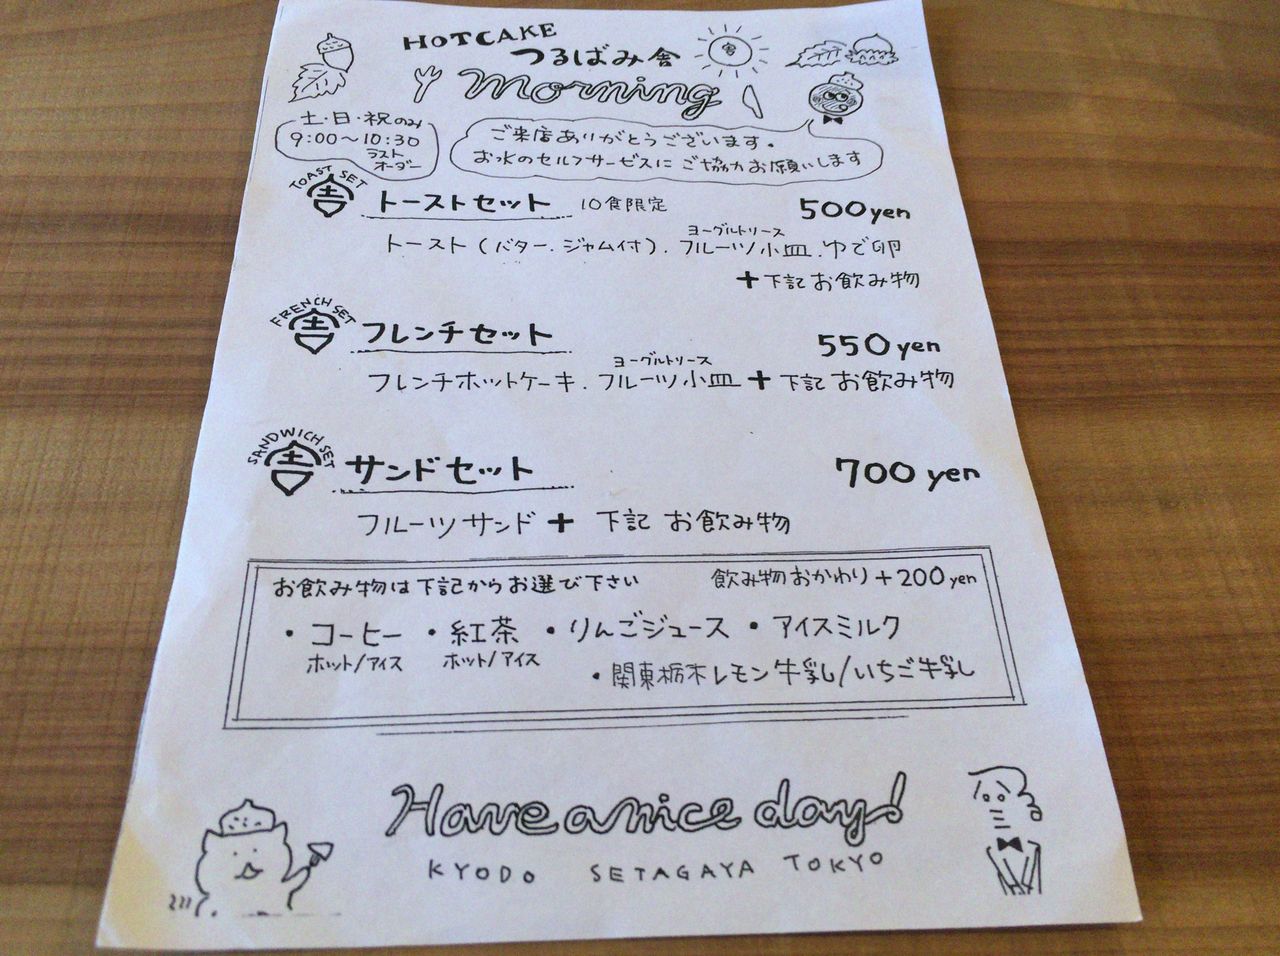 HOTCAKE
つるばみ舎
morning
土・日・祝のみ
9:00〜10:30
ラスト
オーダー
ご来店ありがとうございます。
お水のセルフサービスにご協力お願いします
TOAST SET
舎
トーストセット 10食限定 500yen
ヨーグルトソース
トースト(バター.ジャム付).フルーツ小皿.ゆで卵
+下記お飲み物
FRENCH SET
舎
フレンチセット 550yen
ヨーグルトソース
フレンチホットケーキ.フルーツ小皿+下記お飲み物
SANDWICH SET
舎
サンドセット 700yen
フルーツサンド+ 下記 お飲み物
お飲み物は下記からお選び下さい 飲み物おかわり+200yen
・コーヒー ・紅茶 ・りんごジュース ・アイスミルク
ホット/アイス ホット/アイス
・関東栃木レモン牛乳/いちご牛乳
Have a nice day!
KYODO SETAGAYA TOKYO